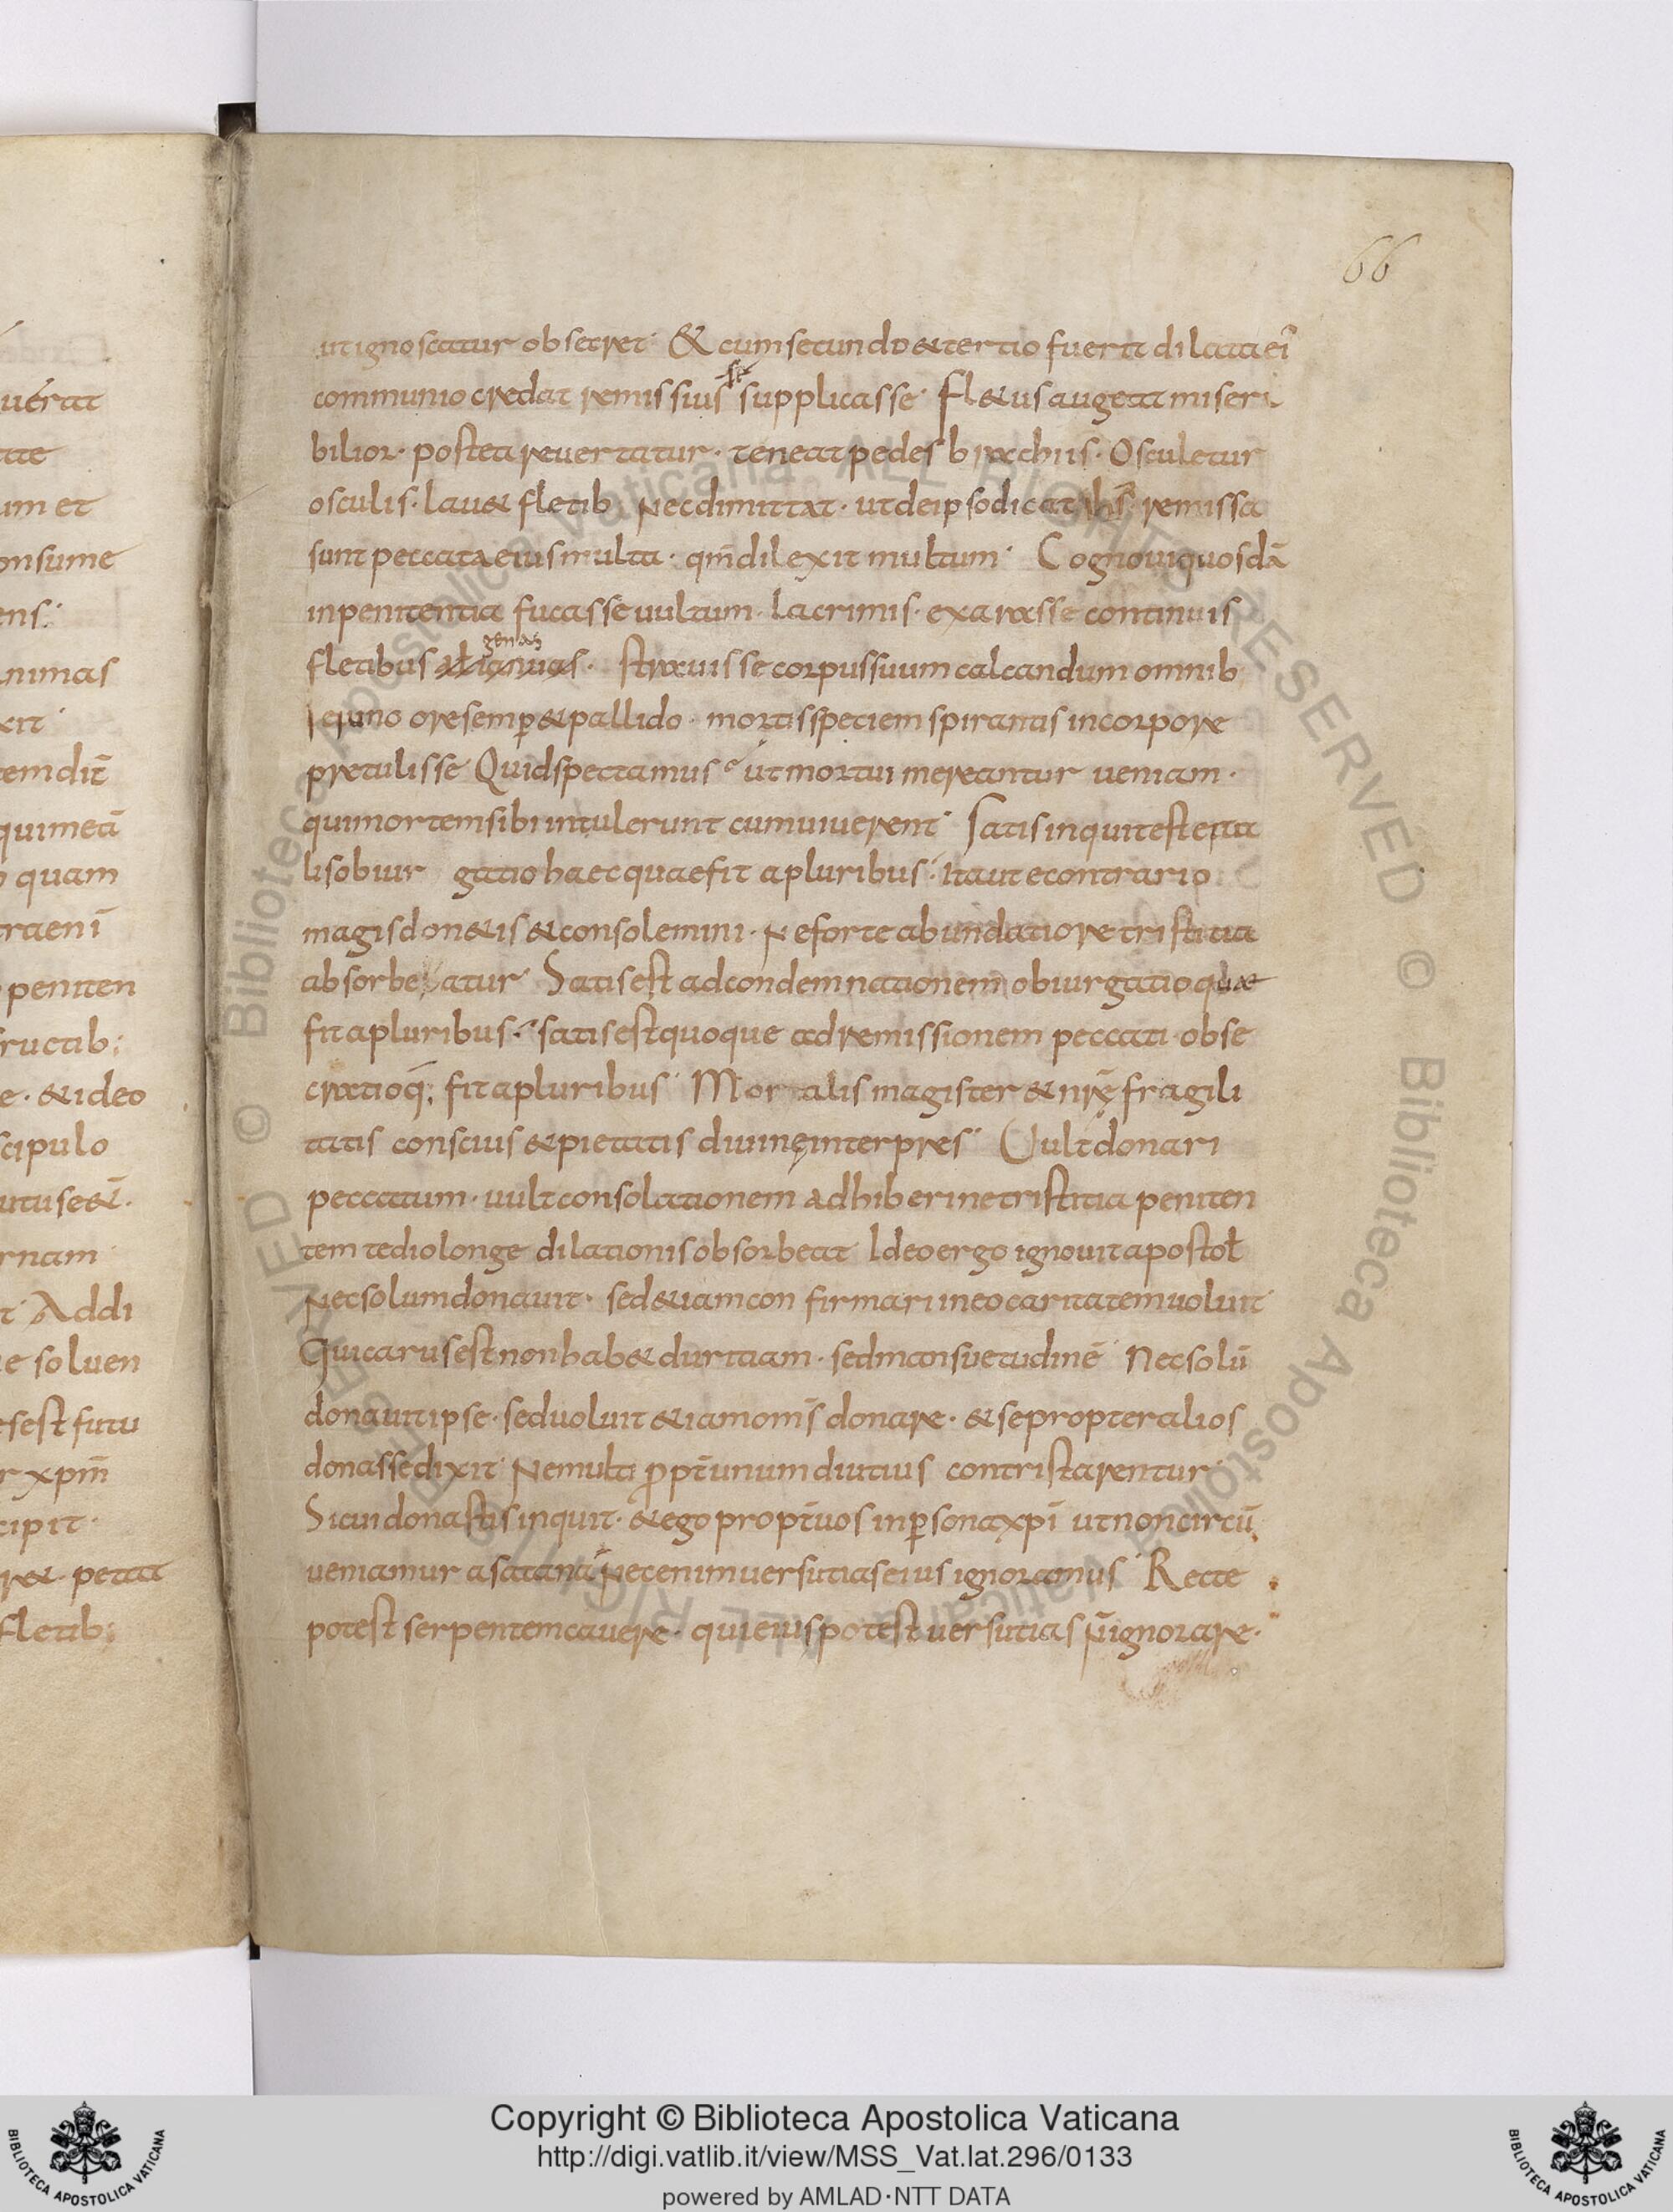 66
ut ignoscatur obsecret · & cum secundo & tertio fuerit dilata ei᷒
communio credat remissius se supplicasse · Fl&us augeat miseri
bilior · postea revertatur · teneat pedes brachiis · Osculetur
osculis · lau& fletib nec dimittat · ut de ipso dicat ihs̄ remissa
sunt peccata eius multa · qm̄ dilexit multum · Cognoui quosdā
in penitentia fucasse uultum lacrimis · exarasse continuis
fletibus genas · strauisse corpus suum calcandum omnib
Ieiuno ore semp̲ & pallido · mortis speciem spirantis in corpore
pretulisse Quid spectamus ut mortui mereantur ueniam ·
qui mortem sibi intulerunt cum uiuerent · Satis inquit est ei ta
lis obiur gatio haec quae fit a pluribus · Ita ut e contrario
magis don&is & consolemini · Ne forte abundatiore tristitia
absorbe atur · Satis est ad condemnationem obiurgatio quae
fit a pluribus · satis est quoque ad remissionem peccati obse
cratio q̄; fit a pluribus · Moralis magister & nr̄ę fragili
tatis conscius & pietatis diuinę interpres · Uult donari
peccatum · uult consolationem adhiberi ne tristitia peniten
tem tedio longe dilationis obsorbeat Ideo ergo ignouit apostoł
Nec solum donauit · sed &iam confirmari in eo caritatem uoluit ·
Qui carus est non hab& duritiam · sed mansuetudinē · Nec solū
donauit ipse · sed uoluit &iam om̄s donare · & se propter alios
donasse dixit · Ne multi ꝓpt̄ unum diutius contristarentur ·
Sicui donastis inquit · & ego propt̄ uos in p̲sona xp̄i ut non circū
ueniamur a satana nec enim uersutias eius ignoramus · Recte
potest serpentem cauere · qui eius potest uersutias n̄ ignorare ·
uerat
um et
onsume
ens ·
nimas
xit ·
tem dic̄
qui meā
quam
traenī
peniten
ructib;
e · & ideo
scipulo
rnam
t Addi
e soluen
est futu
r xpm̄
cipit ·
r& · petat
fletib;
© Biblioteca Apostolica Vaticana ALL RIGHTS RESERVED
© Biblioteca Apostolica Vaticana ALL RIGHTS RESERVED
Copyright © Biblioteca Apostolica Vaticana
http://digi.vatlib.it/view/MSS_Vat.lat.296/0133
powered by AMLAD·NTT DATA
BIBLIOTECA APOSTOLICA VATICANA
BIBLIOTECA APOSTOLICA VATICANA